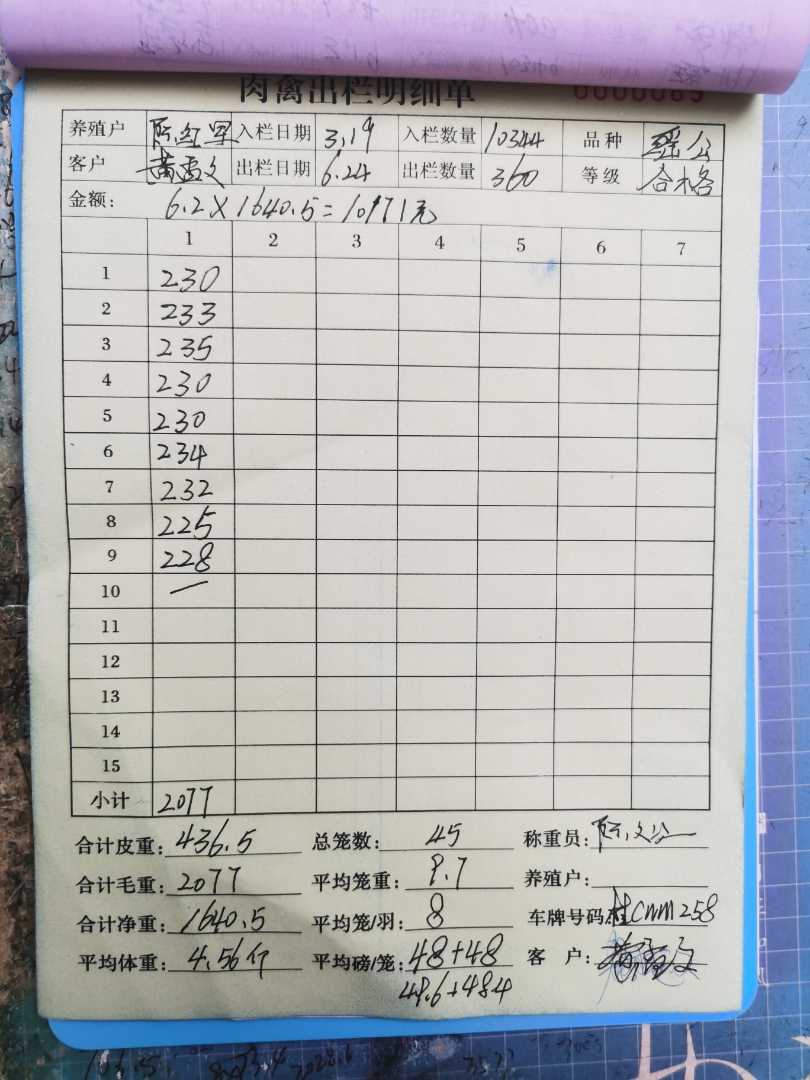 肉禽出栏明细单 0000069
养殖户 陈红军 入栏日期 3.19 入栏数量 10344 品种 瑶公
客户 出栏日期 6.24 出栏数量 360 等级 合格
金额: 6.2×1640.5=10171元
1 2 3 4 5 6 7
1 230
2 233
3 235
4 230
5 230
6 234
7 232
8 225
9 228
10 —
11
12
13
14
15
小计 2077
合计皮重: 436.5 总笼数: 45 称重员:
合计毛重: 2077 平均笼重: 9.7 养殖户:
合计净重: 1640.5 平均笼/羽: 8 车牌号码: 桂CNM258
平均体重: 4.56斤 平均磅/笼: 48+48 客 户:
48.6+48.4